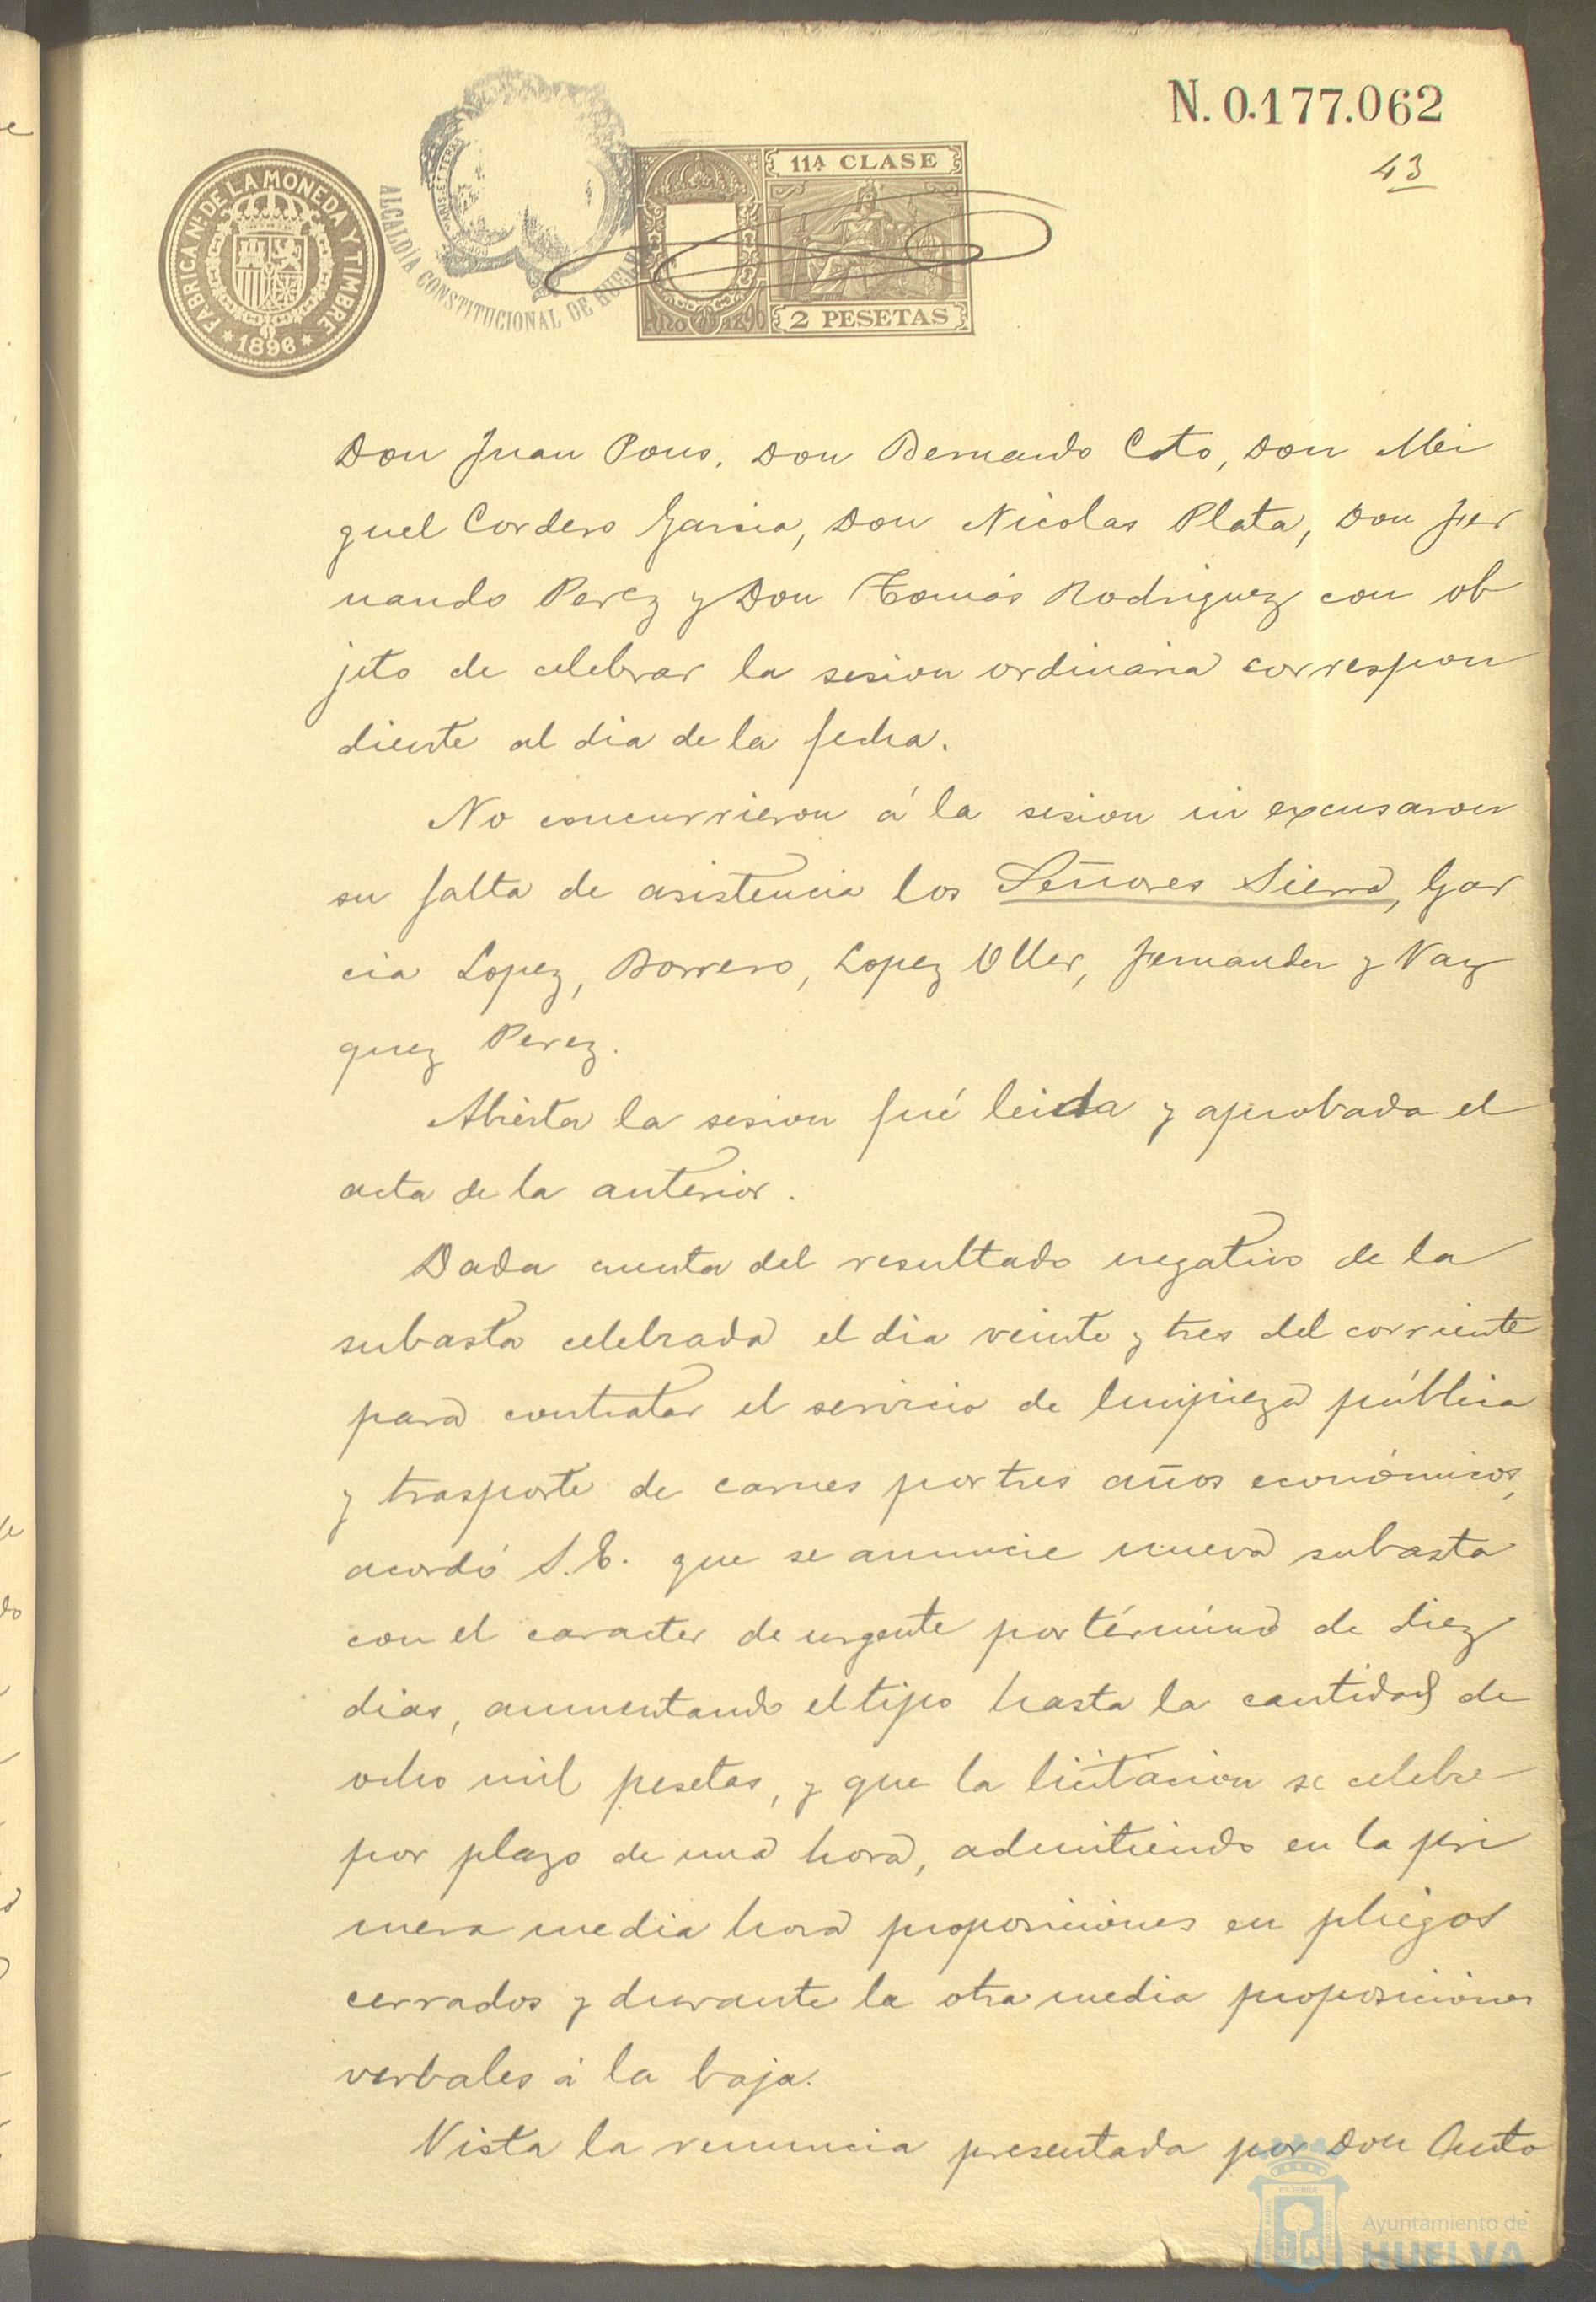 N. 0.177.062
43
FABRICA Nal. DE LA MONEDA Y TIMBRE
* 1896 *
ALCALDÍA CONSTITUCIONAL DE HUELVA
11ª CLASE
2 PESETAS
Don Juan Pons, Don Bernardo Coto, Don Mi
guel Cordero Garcia, Don Nicolas Plata, Don Fer
nando Perez y Don Tomás Rodriguez con ob
jeto de celebrar la sesion ordinaria correspon
diente al dia de la fecha.
No concurrieron á la sesion ni excusaron
su falta de asistencia los Señores Sierra, Gar
cia Lopez, Borrero, Lopez Uller, Fernandez y Vaz
quez Perez.
Abierta la sesion fué leida y aprobada el
acta de la anterior.
Dada cuenta del resultado negativo de la
subasta celebrada el dia veinte y tres del corriente
para contratar el servicio de limpieza pública
y trasporte de carnes por tres años económicos,
acordó S.E. que se anuncie nueva subasta
con el caracter de urgente por término de diez
dias, aumentando el tipo hasta la cantidad de
ocho mil pesetas, y que la licitacion se celebre
por plazo de una hora, admitiendo en la pri
mera media hora proposiciones en pliegos
cerrados y durante la otra media proposiciones
verbales á la baja.
Vista la renuncia presentada por Don Anto
Ayuntamiento de
HUELVA